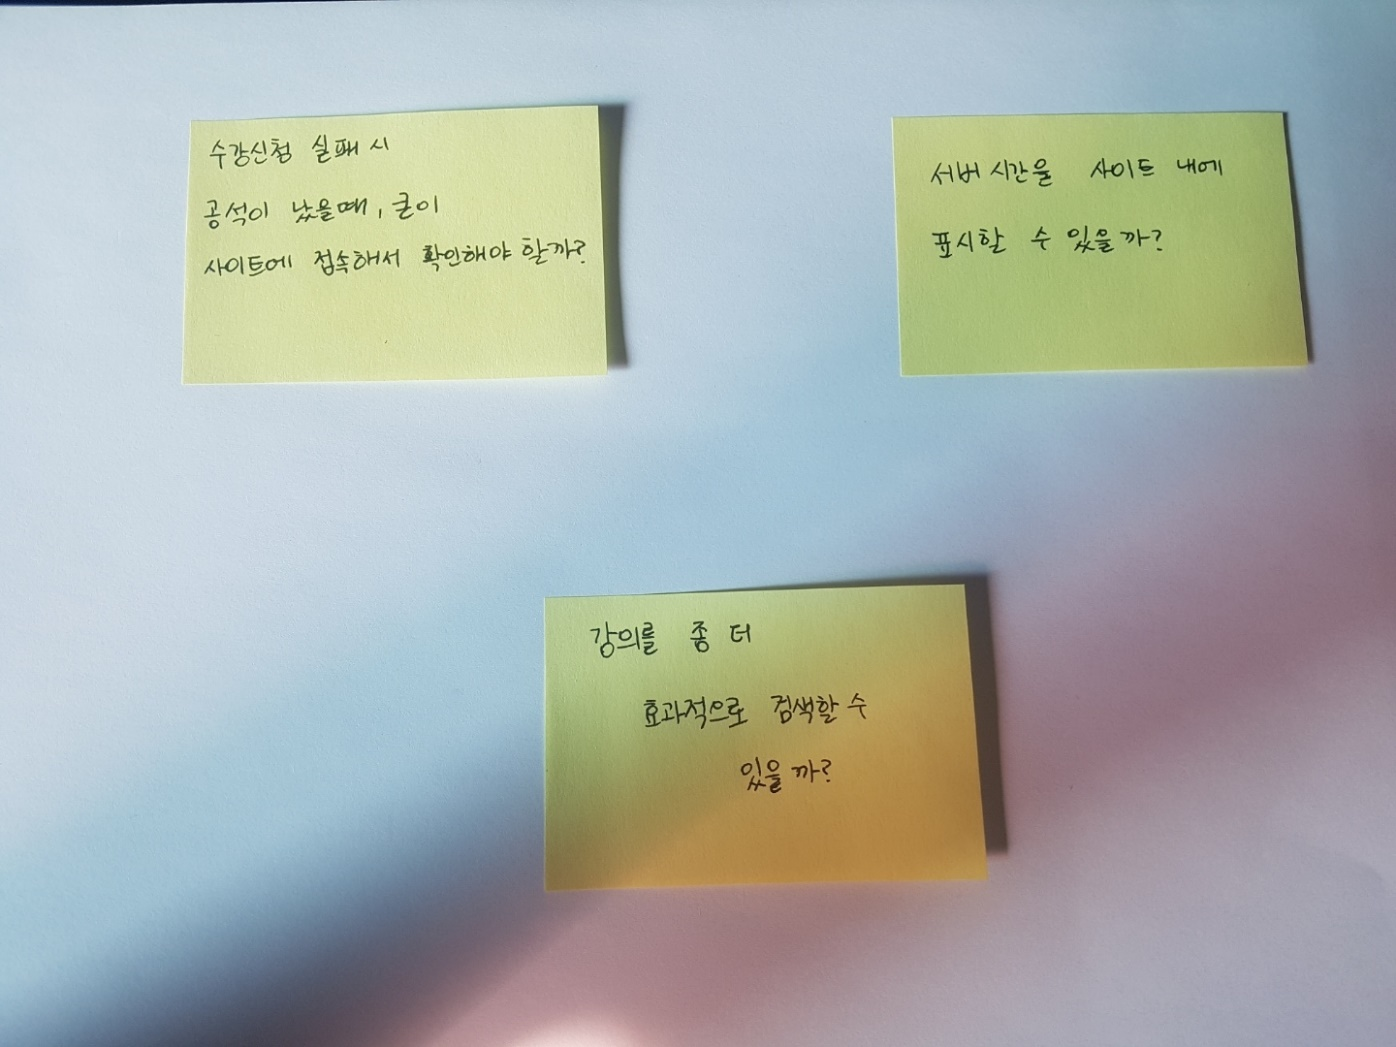 수강신청 실패 시
공석이 났을때, 굳이
사이트에 접속해서 확인해야 할까?
서버 시간을 사이트 내에
표시할 수 있을까?
강의를 좀 더
효과적으로 검색할 수
있을까?